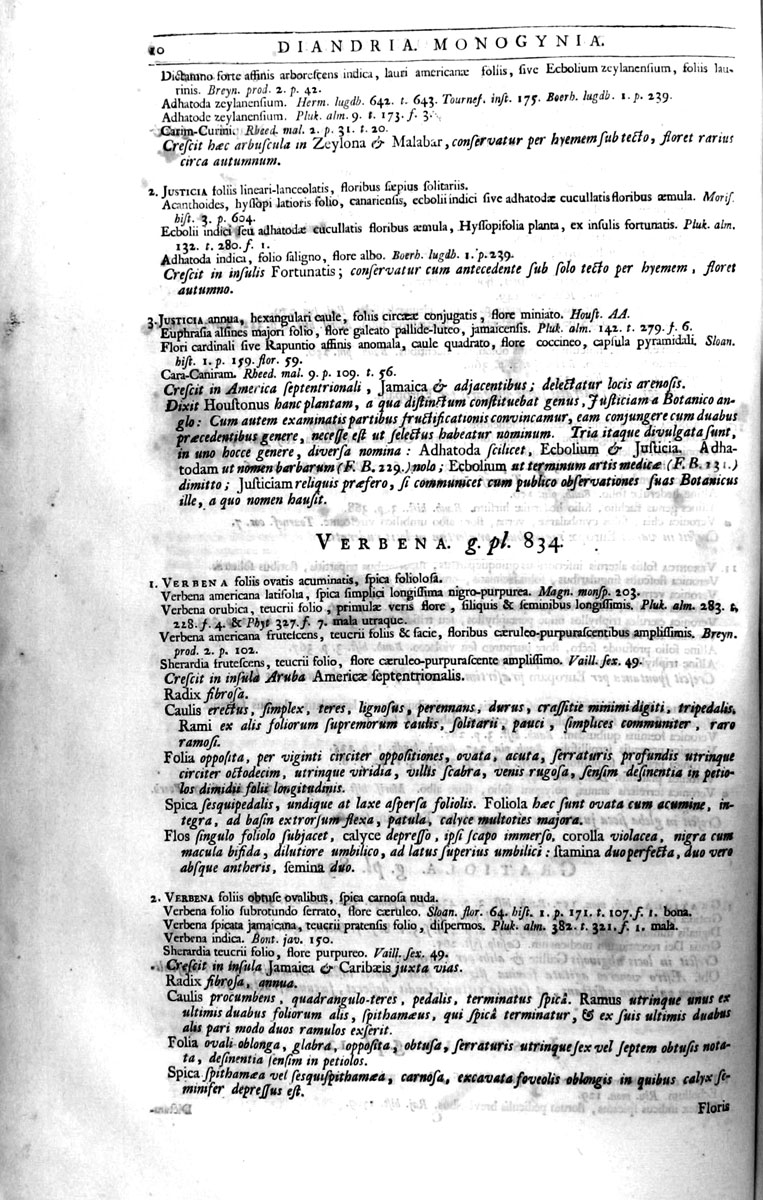 10 DIANDRIA. MONOGYNIA.
Dictamno forte affinis arborescens indica, lauri americanæ foliis, sive Ecbolium zeylanensium, foliis lau-
rinis. Breyn. prod. 2. p. 42.
Adhatoda zeylanensium. Herm. lugdb. 642. t. 643. Tournef. inst. 175. Boerh. lugdb. 1. p. 239.
Adhatode zeylanensium. Pluk. alm. 9. t. 173. f. 3.
Carim-Curini. Rheed. mal. 2. p. 31. t. 20.
Crescit hæc arbuscula in Zeylona & Malabar, conservatur per hyemem sub tecto, floret rarius
circa autumnum.
2. JUSTICIA foliis lineari-lanceolatis, floribus sæpius solitariis.
Acanthoides, hyssopi latioris folio, canariensis, ecbolii indici sive adhatodæ cucullatis floribus æmula. Moris.
hist. 3. p. 604.
Ecbolii indici seu adhatodæ cucullatis floribus æmula, Hyssopifolia planta, ex insulis fortunatis. Pluk. alm.
132. t. 280. f. 1.
Adhatoda indica, folio saligno, flore albo. Boerh. lugdb. 1. p. 239.
Crescit in insulis Fortunatis; conservatur cum antecedente sub solo tecto per hyemem, floret
autumno.
3. JUSTICIA annua, hexangulari caule, foliis circææ conjugatis, flore miniato. Houst. AA.
Euphrasia alsines majori folio, flore galeato pallide-luteo, jamaicensis. Pluk. alm. 142. t. 279. f. 6.
Flori cardinali sive Rapuntio affinis anomala, caule quadrato, flore coccineo, capsula pyramidali. Sloan.
hist. 1. p. 159. flor. 59.
Cara-Caniram. Rheed. mal. 9. p. 109. t. 56.
Crescit in America septentrionali, Jamaica & adjacentibus; delectatur locis arenosis.
Dixit Houstonus hanc plantam, a qua distinctum constituebat genus, Justiciam a Botanico an-
glo: Cum autem examinatis partibus fructificationis convincamur, eam conjungere cum duabus
præcedentibus genere, necesse est ut selectus habeatur nominum. Tria itaque divulgata sunt,
in uno hocce genere, diversa nomina: Adhatoda scilicet, Ecbolium & Justicia. Adha-
todam ut nomen barbarum (F. B. 229.) nolo; Ecbolium ut terminum artis medicæ (F. B. 231.)
dimitto; Justiciam reliquis præfero, si communicet cum publico observationes suas Botanicus
ille, a quo nomen hausit.
VERBENA. g. pl. 834.
1. VERBENA foliis ovatis acuminatis, spica foliolosa.
Verbena americana latifolia, spica simplici longissima nigro-purpurea. Magn. monsp. 203.
Verbena orubica, teucrii folio, primulæ veris flore, siliquis & seminibus longissimis. Pluk. alm. 283. t.
228. f. 4. & Phyt 327. f. 7. mala utraque.
Verbena americana frutescens, teucrii foliis & facie, floribus cæruleo-purpurascentibus amplissimis. Breyn.
prod. 2. p. 102.
Sherardia frutescens, teucrii folio, flore cæruleo-purpurascente amplissimo. Vaill. sex. 49.
Crescit in insula Aruba Americæ septentrionalis.
Radix fibrosa.
Caulis erectus, simplex, teres, lignosus, perennans, durus, crassitie minimi digiti, tripedalis,
Rami ex alis foliorum supremorum caulis, solitarii, pauci, simplices communiter, raro
ramosi.
Folia opposita, per viginti circiter oppositiones, ovata, acuta, serraturis profundis utrinque
circiter octodecim, utrinque viridia, villis scabra, venis rugosa, sensim desinentia in petio-
los dimidii folii longitudinis.
Spica sesquipedalis, undique at laxe aspersa foliolis. Foliola hæc sunt ovata cum acumine, in-
tegra, ad basin extrorsum flexa, patula, calyce multoties majora.
Flos singulo foliolo subjacet, calyce depresso, ipsi scapo immerso, corolla violacea, nigra cum
macula bifida, dilutiore umbilico, ad latus superius umbilici: stamina duo perfecta, duo vero
absque antheris, semina duo.
2. VERBENA foliis obtuse ovalibus, spica carnosa nuda.
Verbena folio subrotundo serrato, flore cæruleo. Sloan. flor. 64. hist. 1. p. 171. t. 107. f. 1. bona.
Verbena spicata jamaicana, teucrii pratensis folio, dispermos. Pluk. alm. 382. t. 321. f. 1. mala.
Verbena indica. Bont. jav. 150.
Sherardia teucrii folio, flore purpureo. Vaill. sex. 49.
Crescit in insula Jamaica & Caribæis juxta vias.
Radix fibrosa, annua.
Caulis procumbens, quadrangulo-teres, pedalis, terminatus spicâ. Ramus utrinque unus ex
ultimis duabus foliorum alis, spithamæus, qui spicâ terminatur, & ex suis ultimis duabus
alis pari modo duos ramulos exserit.
Folia ovali-oblonga, glabra, opposita, obtusa, serraturis utrinque sex vel septem obtusis nota-
ta, desinentia sensim in petiolos.
Spica spithamæa vel sesquispithamæa, carnosa, excavata foveolis oblongis in quibus calyx se-
minifer depressus est.
Floris